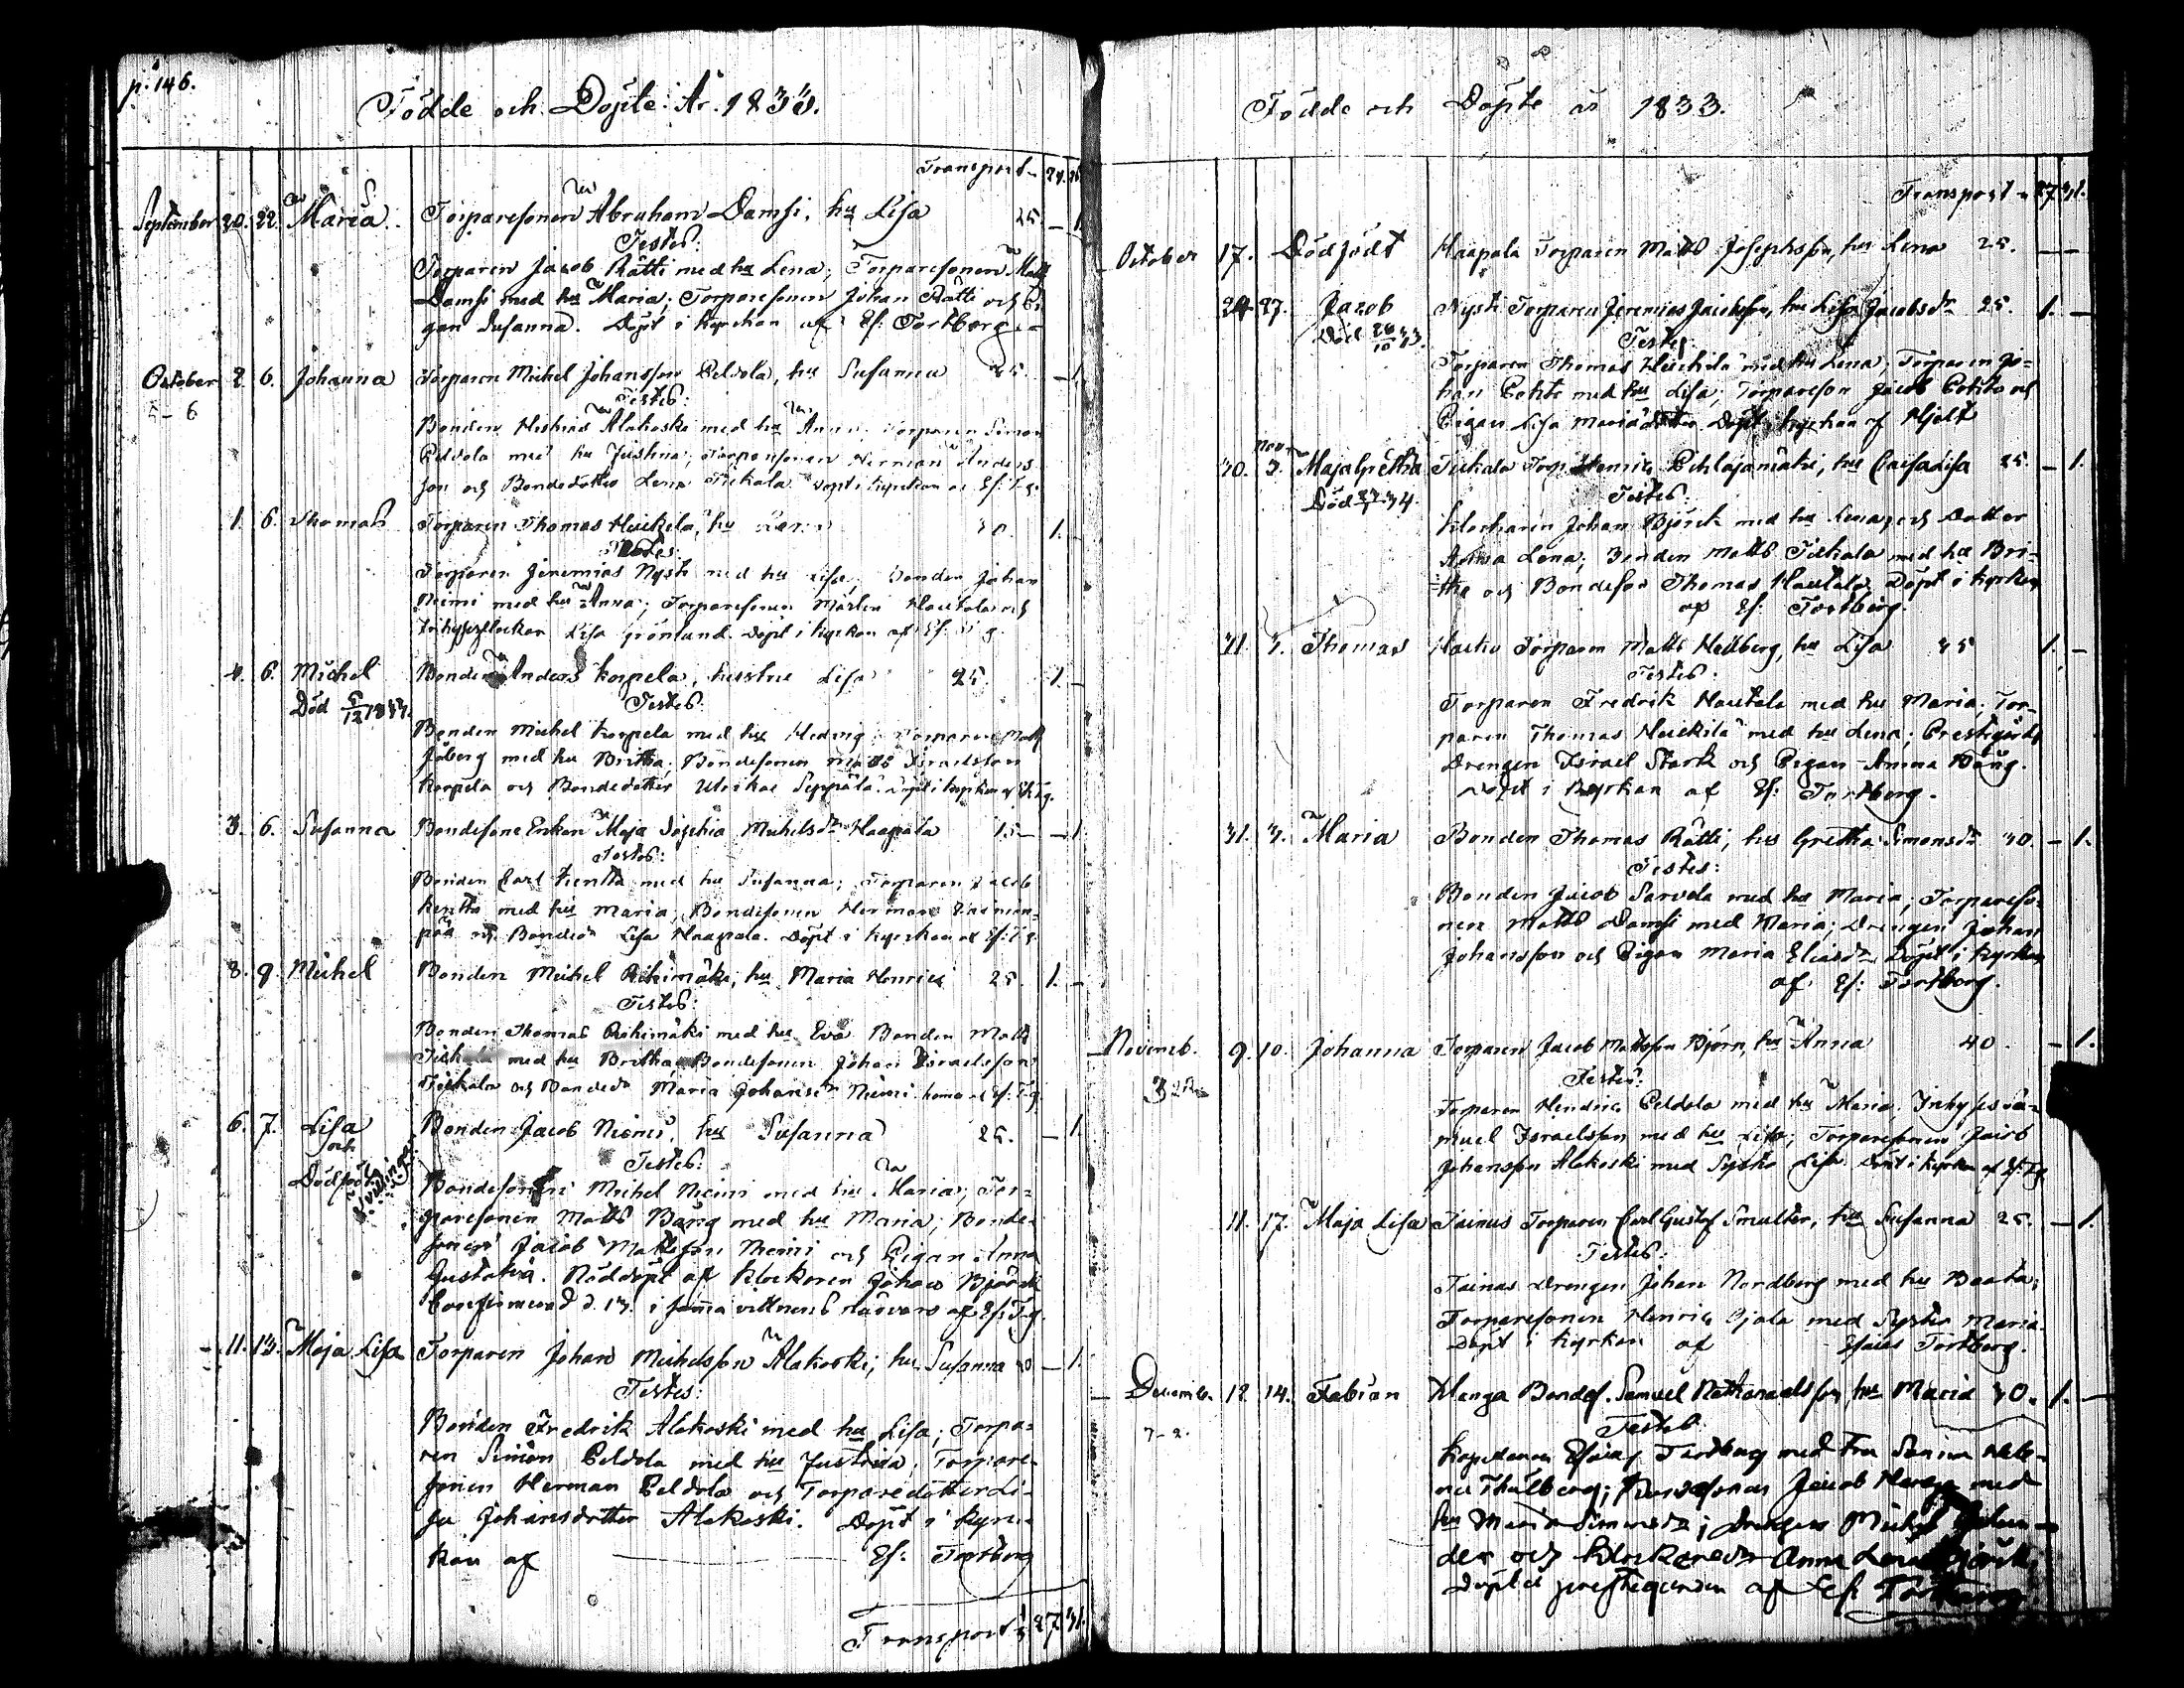 p. 146.
Födde och Döpte År. 1833.
Transport
September 20. 22. Maria. Torparesonen Abraham Damsi, hu Lisa 25. – 1
Testes:
Torparen Jacob Rätti med hu Lena; Torparesonen Matts
Damsi med hu Maria; Torparesonen Johan Rätti och Pi
gan Susanna. Döpt i kyrkan af Es: Tortberg
October 2. 6. Johanna Torparen Michel Johansson Peldola, hu Susanna 25. – 1
5 – 6
Testes:
Bonden Alakoski med hu Anna Torparen Simon
Peldola med hu Justina; Torparesonen Herman Anders
son och Bondedotter Lena Tiskala döpt i kyrkan
1. 6. Thomas Torparen Thomas Heickilä, hu 1. –
Testes:
Torparen Jeremias Nysti med hu Lisa Bonden Johan
Niemi med hu Anna; Torparesonen Martin Hautala och
Lisa Grönlund. Döpt i kyrkan af Es:
4. 6. Michel Bonden Anders Korpela, hustru Lisa 25. 1. –
Död 5/12 1833.
Testes:
Bonden Michel Korpela med hu Hedvig; Torparen Matts
Sjöberg med hu Britha; Bondesonen Matts Israelsson
Korpela och Bondedotter Ulrika Seppälä. Döpt i kyrkan af Es: T-g.
3. 6. Susanna Bondesone Enkan Maja Sophia Michelsdr Haapala – 1
Testes:
Bonden Carl Kentta med hu Susanna; Torparen Jacob
Kentta med hu Maria; Bondesonen Herman
och Bondedr Lisa Haapala. Döpt i kyrkan af Es: T-g.
8. 9. Michel Bonden Michel Riihimäki, hu Maria Henrics 25. 1. –
Testes:
Bonden Thomas Riihimäki med hu Eva Bonden Matts
Tiskala med hu Britha; Bondesonen Johan Israelsson
Tiskala och Bondedr Maria Johansdr Niemi hema af Es: T-g
6. 7. Lisa Bonden Jacob Niemi, hu Susanna 25. – 1.
och
Dödfödt
Tvillingar
Testes:
Bondesonen Michel Niemi med hu Maria; Tor-
paresonen Matts Bång med hu Maria; Bonde-
sonen Jacob Mattsson Niemi och Pigan Anna
Gustafva. Nöddöpt af Klockaren Johan Björck
Confirmerad d. 13. i samma vittnens närvaro af Es: T-g.
11. 13. Maja Lisa Torparen Johan Michelsson Alakoski, hu Susanna 40 – 1.
Testes:
Bonden Fredrik Alakoski med hu Lisa; Torpa-
ren Simon Peldola med hu Justina; Torpare-
sonen Herman Peldola och Torparedotter Li-
sa Johansdotter Alakoski. Döpt i kyr-
kan af Es: Tortberg
Transport 27 31.
Födde och Döpte år 1833.
Transport – 27 31.
October 17. Dödfödt Haapala Torparen Matts Josephsson, hu Lena 25. –
24 27. Jacob Nysti Torparen Jeremias Jacobsson, hu Lisa Jacobsdr 25. 1. –
Död 28/10 33.
Testes:
Torparen Thomas Heickilä med hu Lena; Torparen Jo-
han med hu Lisa; Torpareson Jacob och
Pigan Lisa Mariadotter Döpt i kyrkan af Hjelt
30. Nov. 3. Maja Gretha Tiskala Torp. Henric Pehlajamäki, hu Caisa Lisa 25. – 1.
Testes:
Klockaren Johan Björck med hu Lena, och Dotter
Anna Lena; Bonden Matts Tiskala med hu Bri-
tha och Bondeson Thomas Hautala Döpt i kyrkan
af Es: Tortberg.
31. 3. Thomas Torparen Matts Hedberg, hu Lisa 35 1. –
Testes:
Torparen Fredrik Hautala med hu Maria; Tor-
paren Thomas Heickilä med hu Lena; Prestgårds
Drengen Israel Stark och Pigan Anna Bång.
Döpt i Kyrkan af Es: Tortberg.
31. 3. Maria Bonden Thomas Rätti, hu Gretha Simonsdr 30. – 1.
Testes:
Bonden Jacob Sarvela med hu Maria; Torpareso-
nen Matts Damsi med Maria; Drengen Johan
Johansson och Pigan Maria Eliasdr Döpt i Kyrkan
af Es: Tortberg.
Novemb. 9. 10. Johanna Torparen Jacob Mattsson Björn, hu Anna 40. – 1.
Testes:
Torparen Henric Peldola med hu Maria. Inhyses Sa-
muel Israelsson med hu Lisa; Torparesonen Jacob
Johansson Alakoski med Syster Lisa Döpt i kyrkan af Es: T-g
11. 17. Maja Lisa Tainus Torparen Carl Gustaf Smulter, hu Susanna 25. – 1.
Testes:
Tainas Drengen Johan Nordberg med hu Beata;
Torparesonen Henric Ojala med Syster Maria.
Döpt i kyrkan af Esaias Tortberg.
Decemb. 12. 14. Fabian Hanga Bondes. Samuel Nathanaelsson, hu Maria 30. 1. –
7 – 2.
Testes
Kapellanen Esaias Tortberg med Fru Sanna Hele-
na Thulberg; Bondesonen Jacob Hanga med
hu Maria Simonsdr; Drengen Michel
der och Klockaredr Anna Lena Björck,
Döpt i prestgården af Es: Tortberg